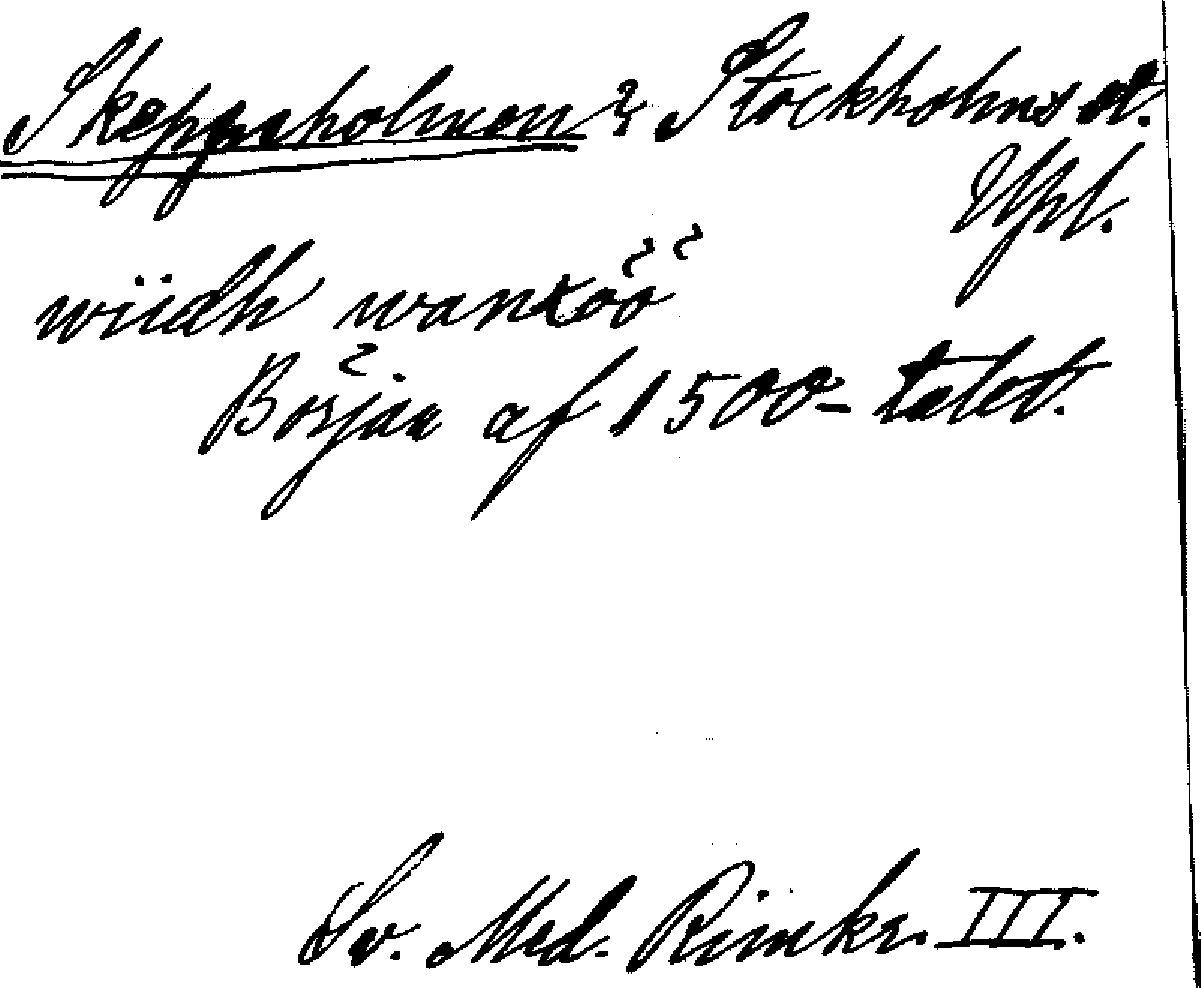 Skeppsholmen? Stockholms st.
Upl.
wiidh warxöö
Början af 1500-talet.
Sv. Med. Rimkr. III.